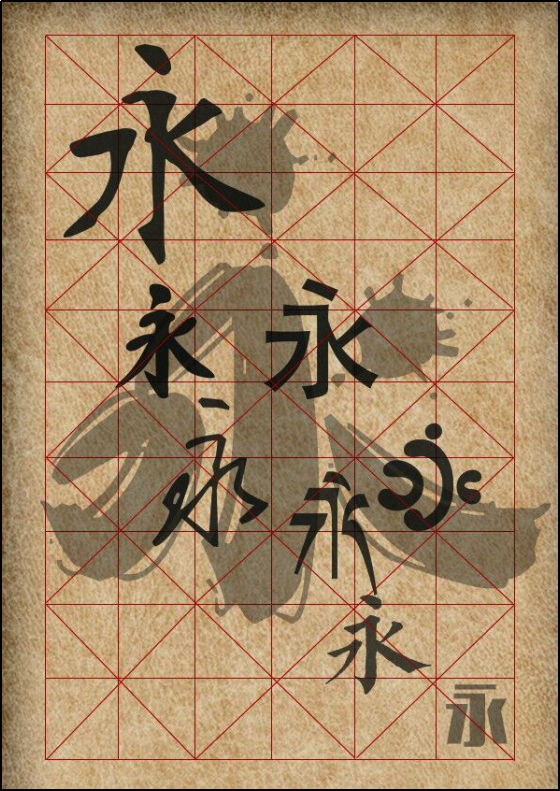 永
永
永
永
永
永
永
永
永